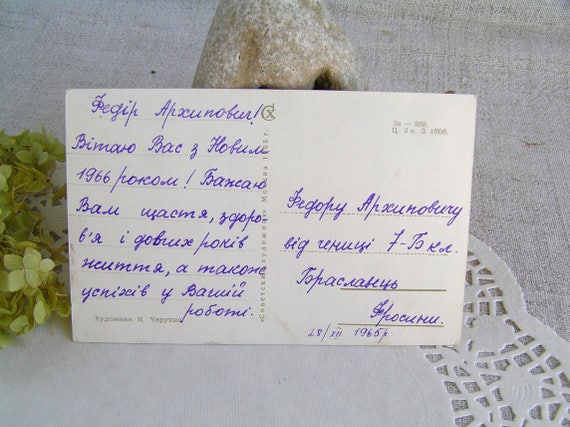 Федір Архипович!
Вітаю Вас з Новим
1966 роком! Бажаю
Вам щастя, здоро-
в'я і довгих років
життя, а також
успіхів у Вашій
роботі.
Художник Е. Чарухин
«Советский художник» Москва 1965 г.
За — 508.
Ц. 2 к. З. 1006.
Федору Архиповичу
від учениці 7-Б кл.
Брасланець
Фросини.
28/XII 1965 р.